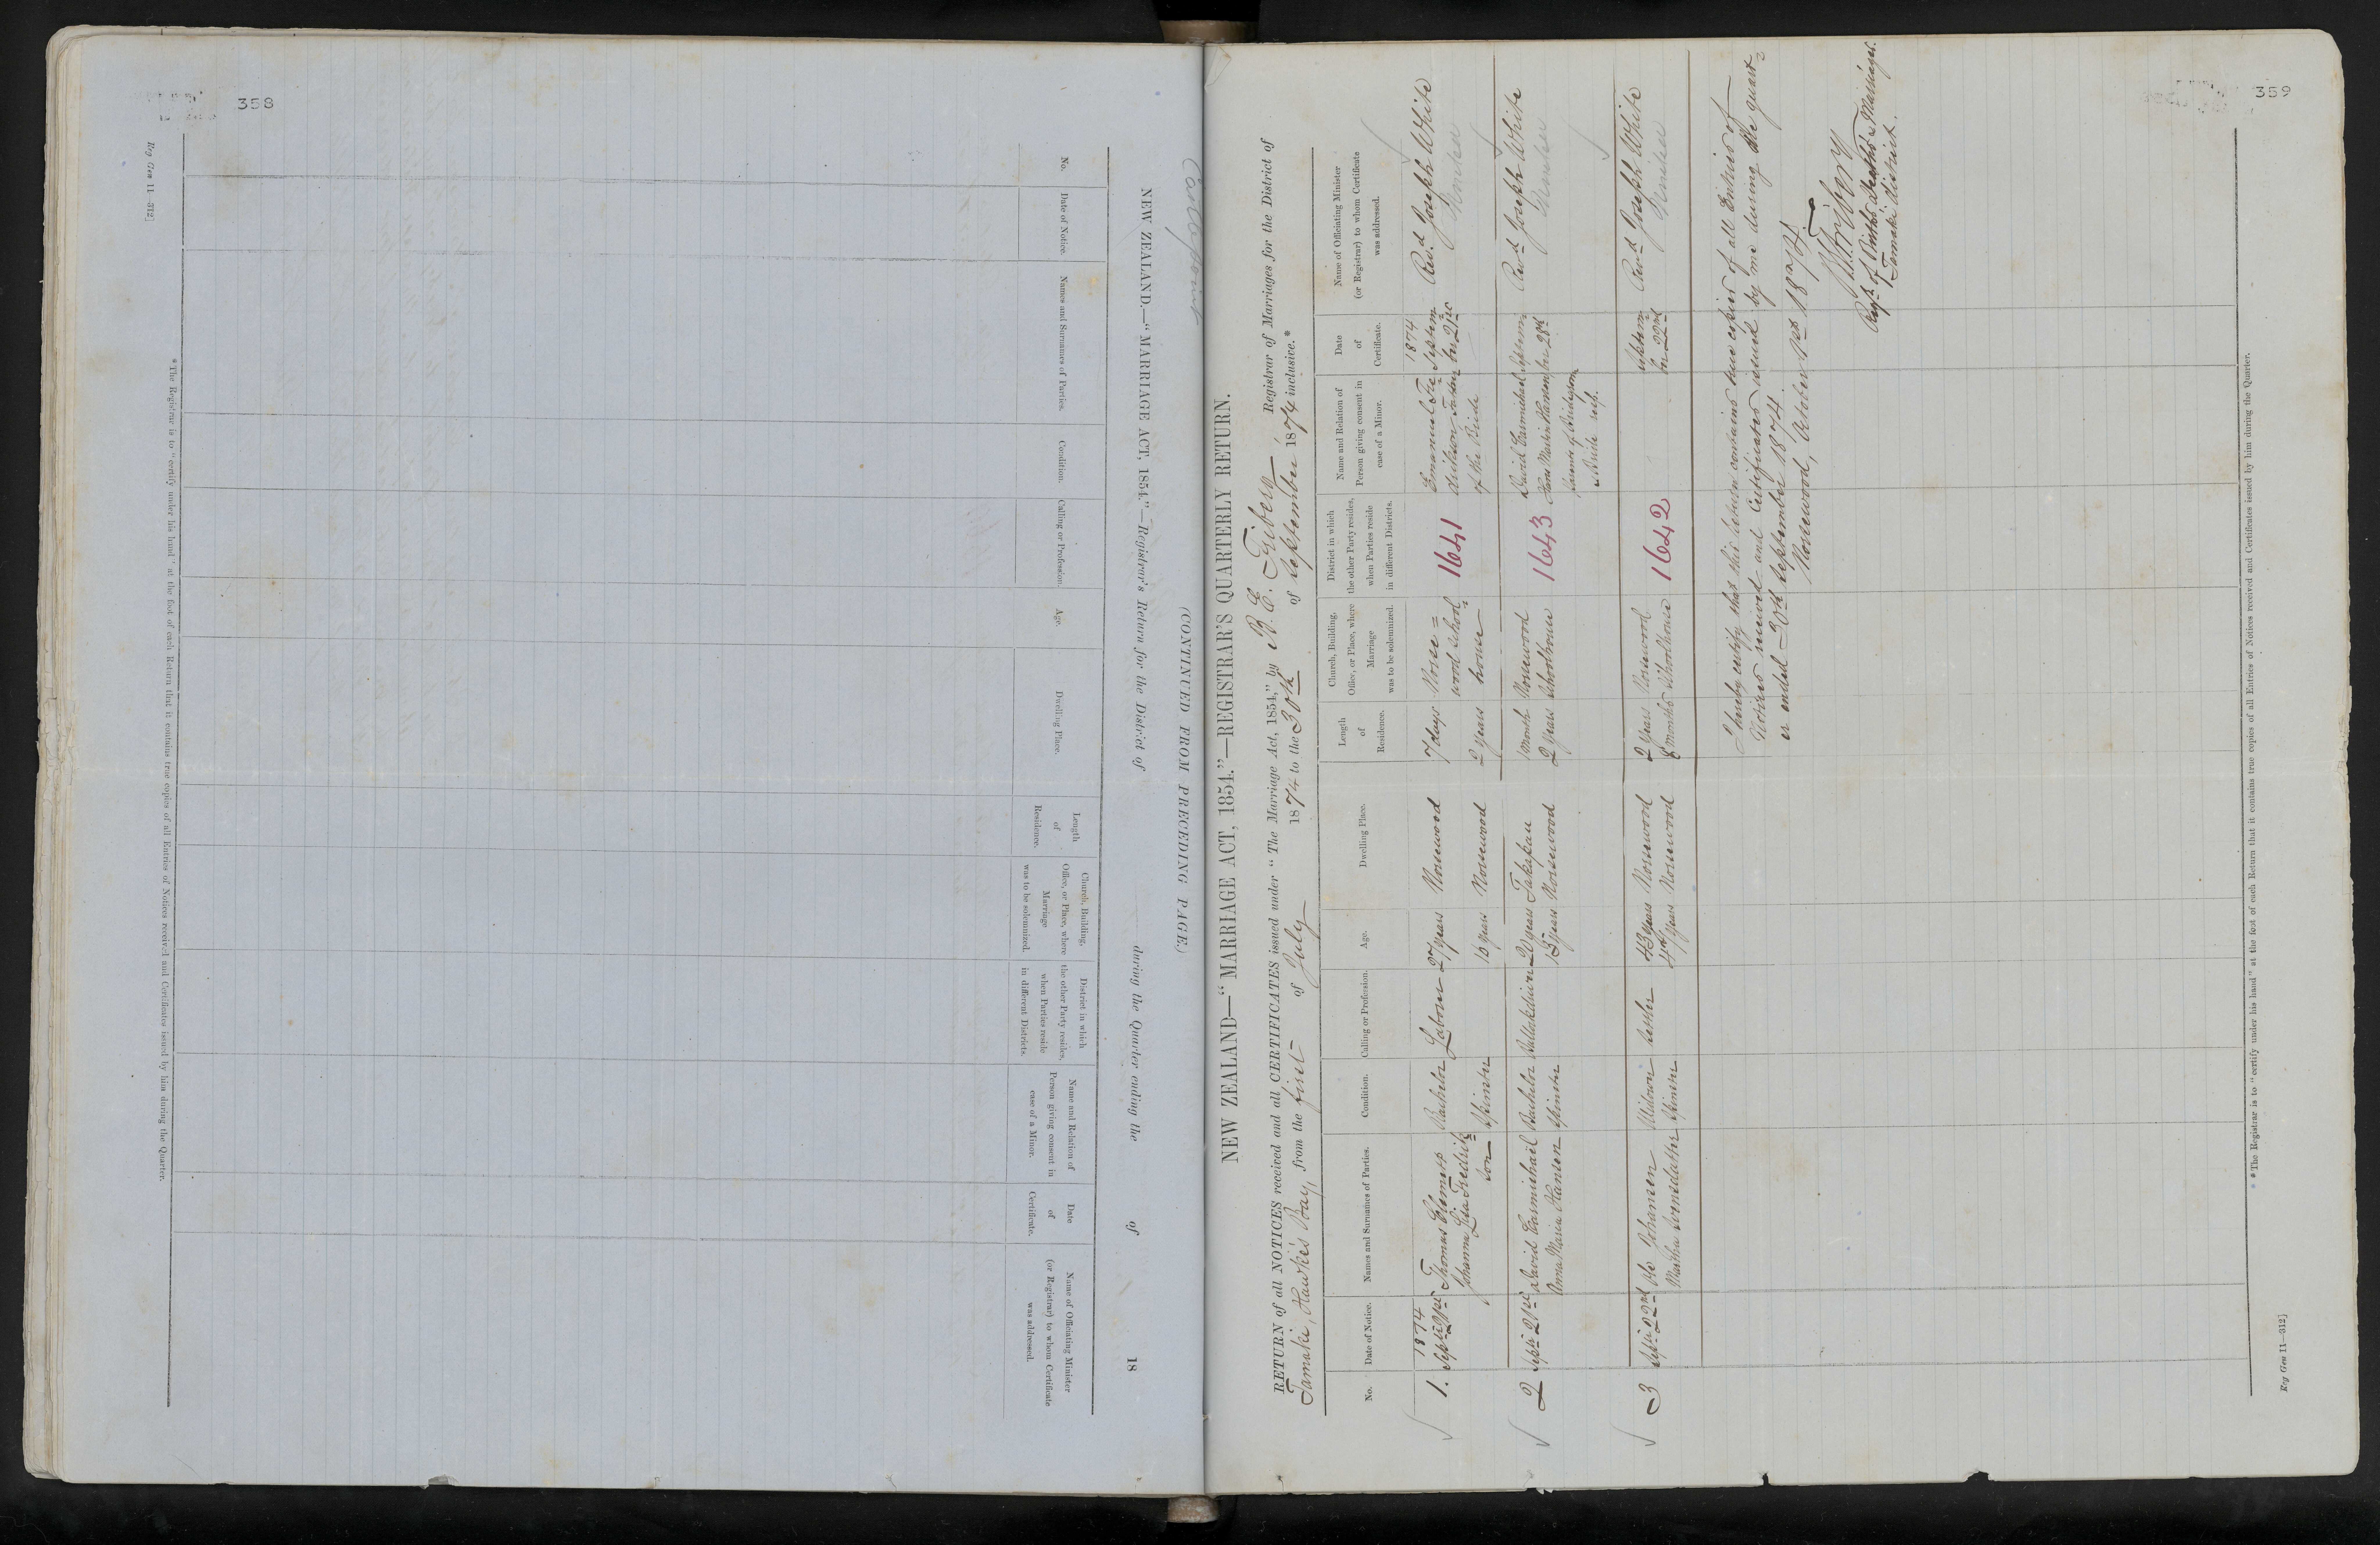 358
(CONTINUED FROM PRECEDING PAGE.)
NEW ZEALAND.—"MARRIAGE ACT, 1854."—Registrar's Return for the District of during the Quarter ending the of 18
No.
Date of Notice.
Names and Surnames of Parties.
Condition.
Calling or Profession.
Age.
Dwelling Place.
Length
of
Residence.
Church, Building,
Office, or Place, where
Marriage
was to be solemnized.
District in which
the other Party resides,
when Parties reside
in different Districts.
Name and Relation of
Person giving consent in
case of a Minor.
Date
of
Certificate.
Name of Officiating Minister
(or Registrar) to whom Certificate
was addressed.
* The Registrar is to "certify under his hand" at the foot of each Return that it contains true copies of all Entries of Notices received and Certificates issued by him during the Quarter.
Reg Gen 11—312]
359
NEW ZEALAND—"MARRIAGE ACT, 1854."—REGISTRAR'S QUARTERLY RETURN.
RETURN of all NOTICES received and all CERTIFICATES issued under "The Marriage Act, 1854," by Registrar of Marriages for the District of
Tamaki, Hawke's Bay, from the first of July 1874 to the 30th of September 1874 inclusive.*
No.
Date of Notice.
Names and Surnames of Parties.
Condition.
Calling or Profession.
Age.
Dwelling Place.
Length
of
Residence.
Church, Building,
Office, or Place, where
Marriage
was to be solemnized.
District in which
the other Party resides,
when Parties reside
in different Districts.
Name and Relation of
Person giving consent in
case of a Minor.
Date
of
Certificate.
Name of Officiating Minister
(or Registrar) to whom Certificate
was addressed.
1874 1874
1. Thomas Bachelor Labourer 27 years Norsewood 7 days Norse= 1641 Emanuel Septem Revd. Joseph White
Johanna Spinster Norsewood 2 years wood School father ber
house of the Bride
2 David Carmichael Bachelor Bullockdriver 20 years Takapau 1 Month Norsewood 1643 David Carmichael Revd Joseph White
Anna Maria Hansen Spinster Norsewood 2 years Schoolhouse
Parents of Bridegroom
Bride resp.
3 Septr 22nd Johansen Widower Settler 43 years Norsewood 2 years Norsewood 1642 Septem Revd Joseph White
Martha Spinster Norsewood months Schoolhouse ber 22nd
I hereby certify that this Return contains true copies of all Entries of
Notices received and Certificates issued by me during the quart=
er ended 30th September 1874.
Norsewood, October 1st 1874
Regr. of Births Deaths & Marriages.
Tamaki district.
* The Registrar is to "certify under his hand" at the foot of each Return that it contains true copies of all Entries of Notices received and Certificates issued by him during the Quarter.
Reg Gen 11—312]